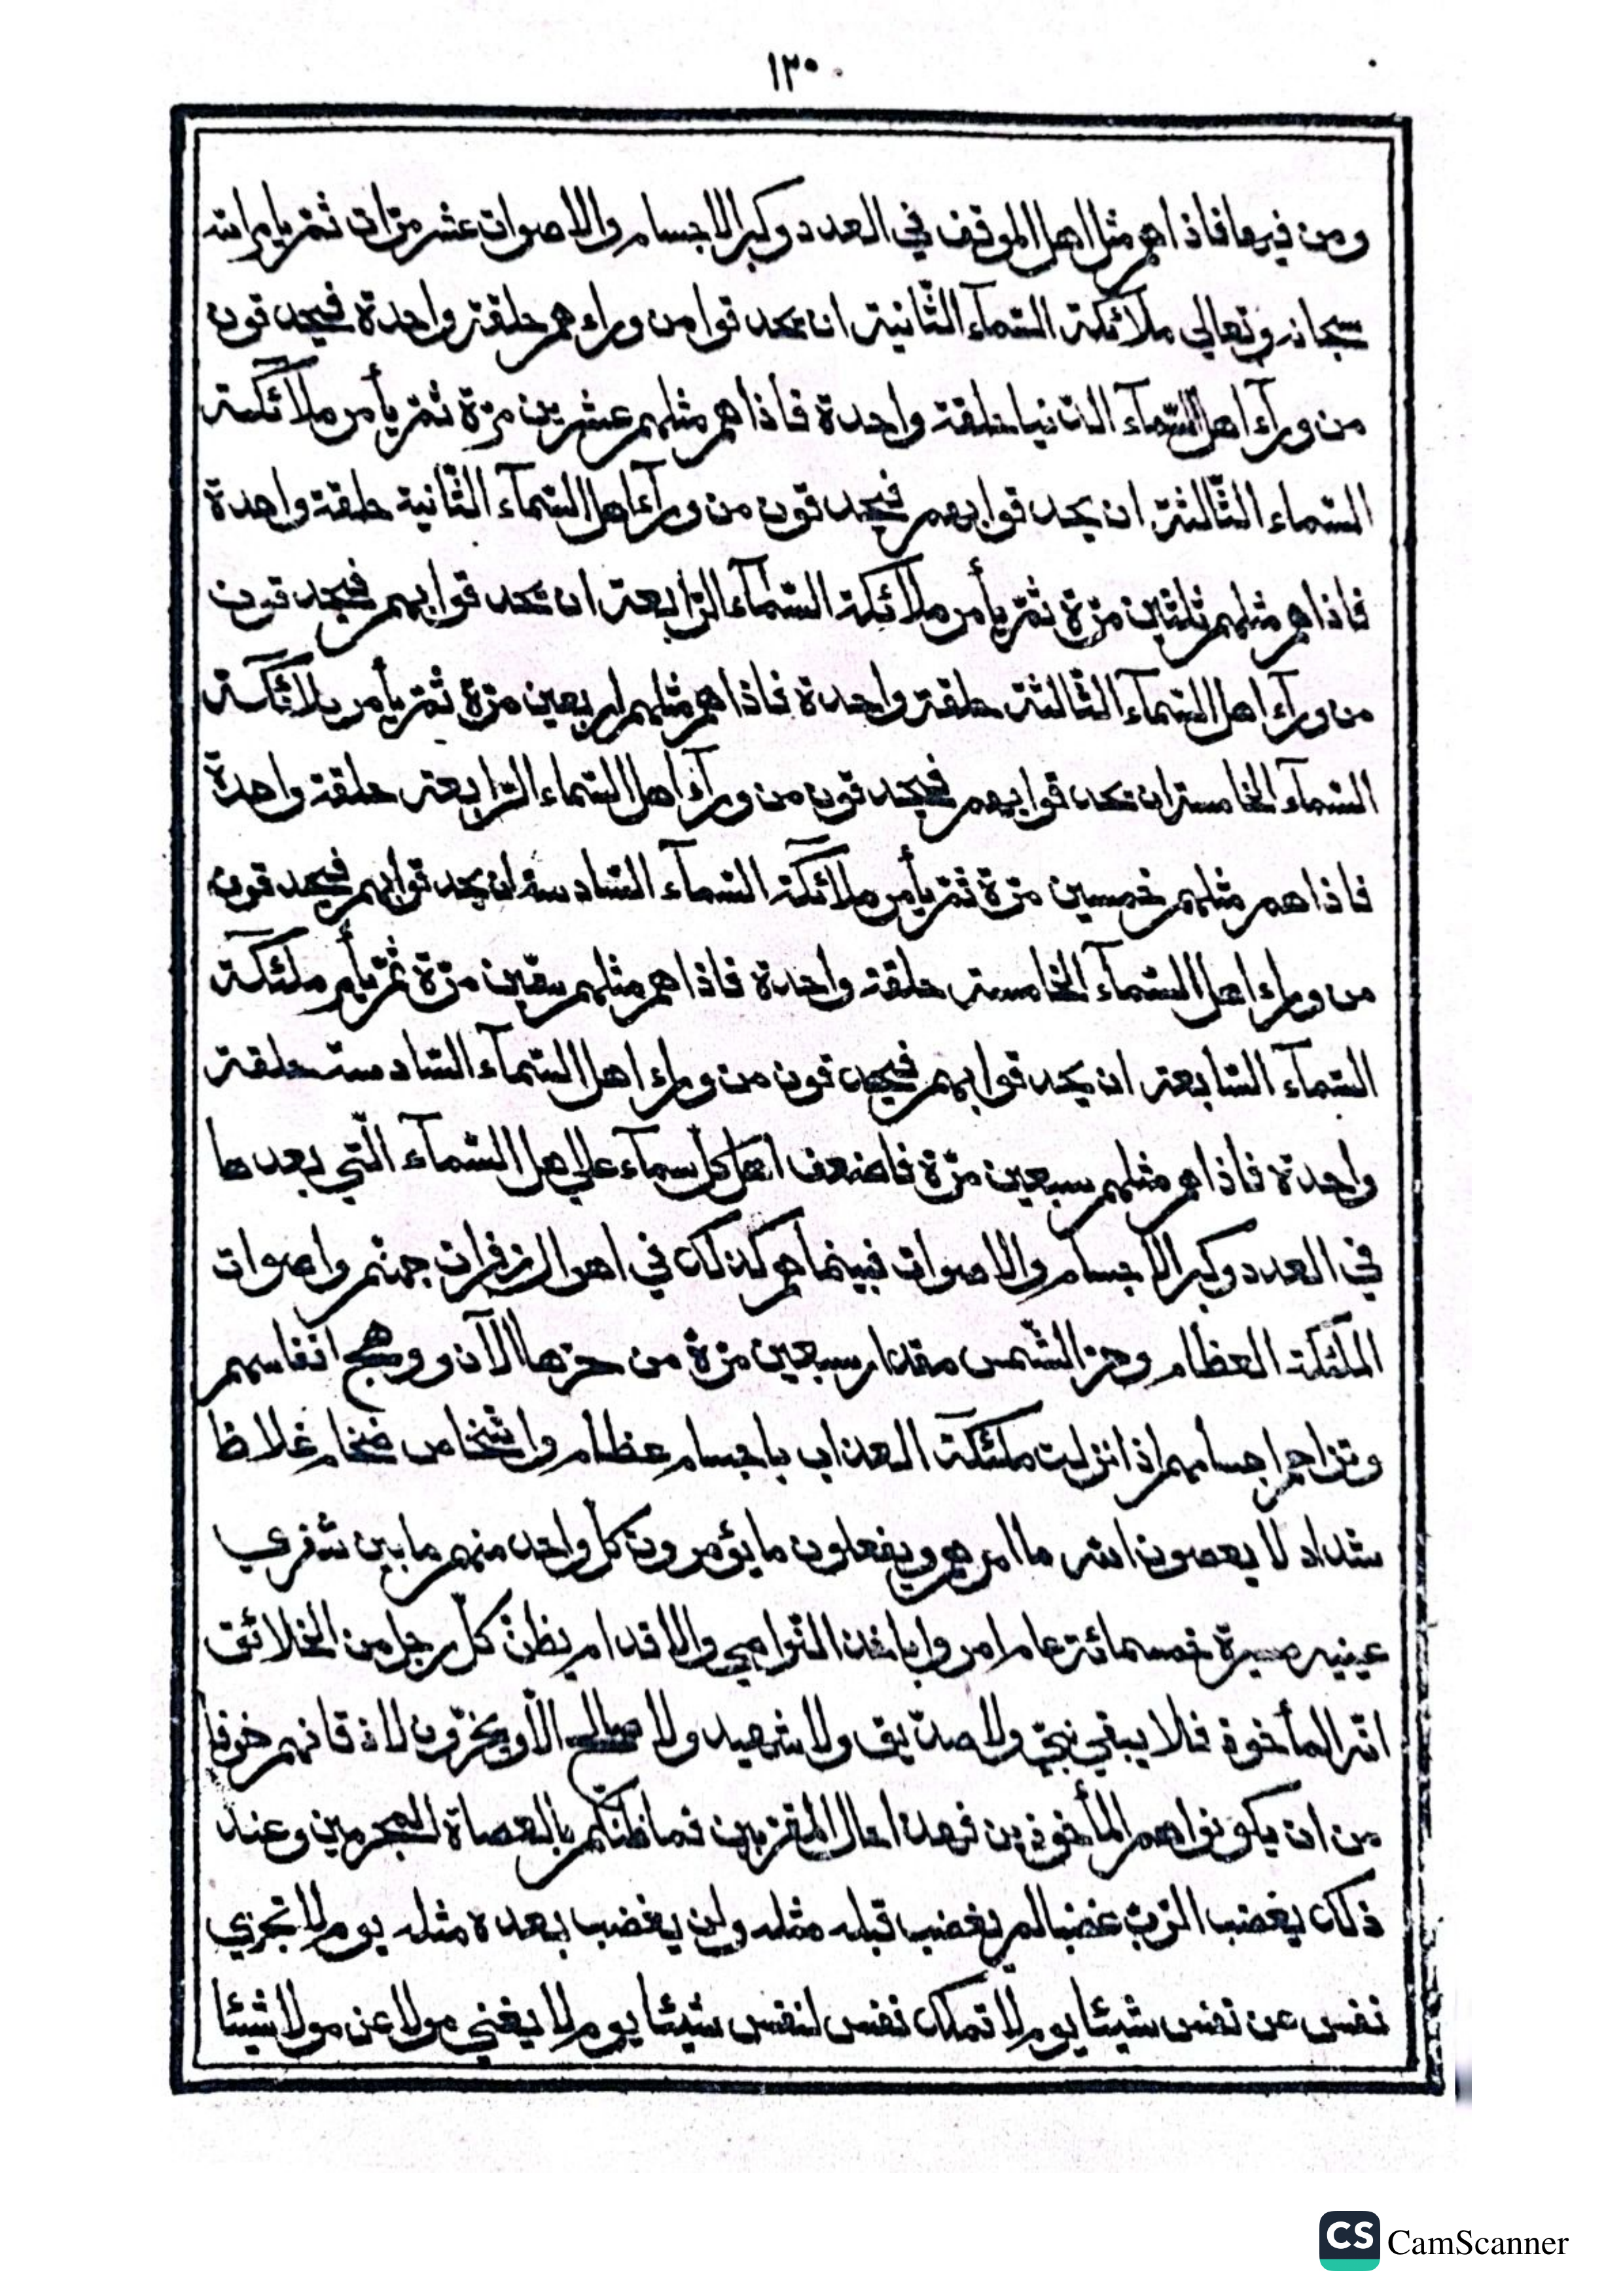 ١٣٠
ومن فيها فاذاهم مثل اهل الموقف في العدد وكبر الاجسام والاصوات عشر مرّات ثمّ يامر الله
سبحانه وتعالي ملآئكة السّمآء الثّانية ان يحدقوا من وراءهم حلقة واحدة فيحدقون
من ورآء اهل السّمآء الدنيا حلقة واحدة فاذاهم مثلهم عشرين مرّة ثمّ يأمر ملآئكة
السّماء الثّالثة ان يحدقوا بهم فيحدقون من ورآء اهل السّمآء الثّانية حلقة واحدة
فاذاهم مثلهم ثلثين مرّة ثمّ يأمر ملآئكة السّمآء الرّابعة ان يحدقوا بهم فيحدقون
من ورآء اهل السّمآء الثّالثة حلقة واحدة فاذاهم مثلهم اربعين مرّة ثمّ يأمر ملآئكة
السّمآء الخامسة ان يحدقوا بهم فيحدقون من ورآء اهل السّماء الرّابعة حلقة واحدة
فاذاهم مثلهم خمسين مرّة ثمّ يأمر ملآئكة السّمآء السّادسة ان يحدقوا بهم فيحدقون
من وراء اهل السّمآء الخامسة حلقة واحدة فاذاهم مثلهم ستّين مرّة ثمّ يأمر ملئكة
السّمآء السّابعة ان يحدقوا بهم فيحدقون من وراء اهل السّمآء السّادسة حلقة
واحدة فاذاهم مثلهم سبعين مرّة فاضعف اهل كل سمآء علي اهل السّمآء الّتي بعدها
في العدد وكبر الاجسام والاصوات فبينما هم كذلك في اهوال زفرات جهنّم واصوات
الملئكة العظام وحرّ الشّمس مقدار سبعين مرّة من حرّها الآن ووهج انفاسهم
وتزاحم اجسامهم اذا نزلت ملئكة العذاب باجسام عظام واشخاص ضخام غلاظ
شداد لا يعصون الله ما امرهم ويفعلون ما يؤمرون كلّ واحد منهم ما بين شفري
عينيه مسيرة خمسمائة عام امروا باخذ النّواصي والاقدام يظنّ كلّ رجل من الخلائق
انّه المأخوذ فلا يبقي نبيّ ولا صدّيق ولا شهيد ولا صالح الّا ويخرّون لاذقانهم خوفا
من ان يكونوا هم المأخوذين فهذا حال المقرّبين فما ظنّكم بالعصاة المجرمين وعند
ذلك يغضب الرّبّ غضبا لم يغضب قبله مثله ولن يغضب بعده مثله يوم لا تجزي
نفس عن نفس شيئا يوم لا تملك نفس لنفس شيئا يوم لا يغني مولا عن مولا شيئا
CS CamScanner